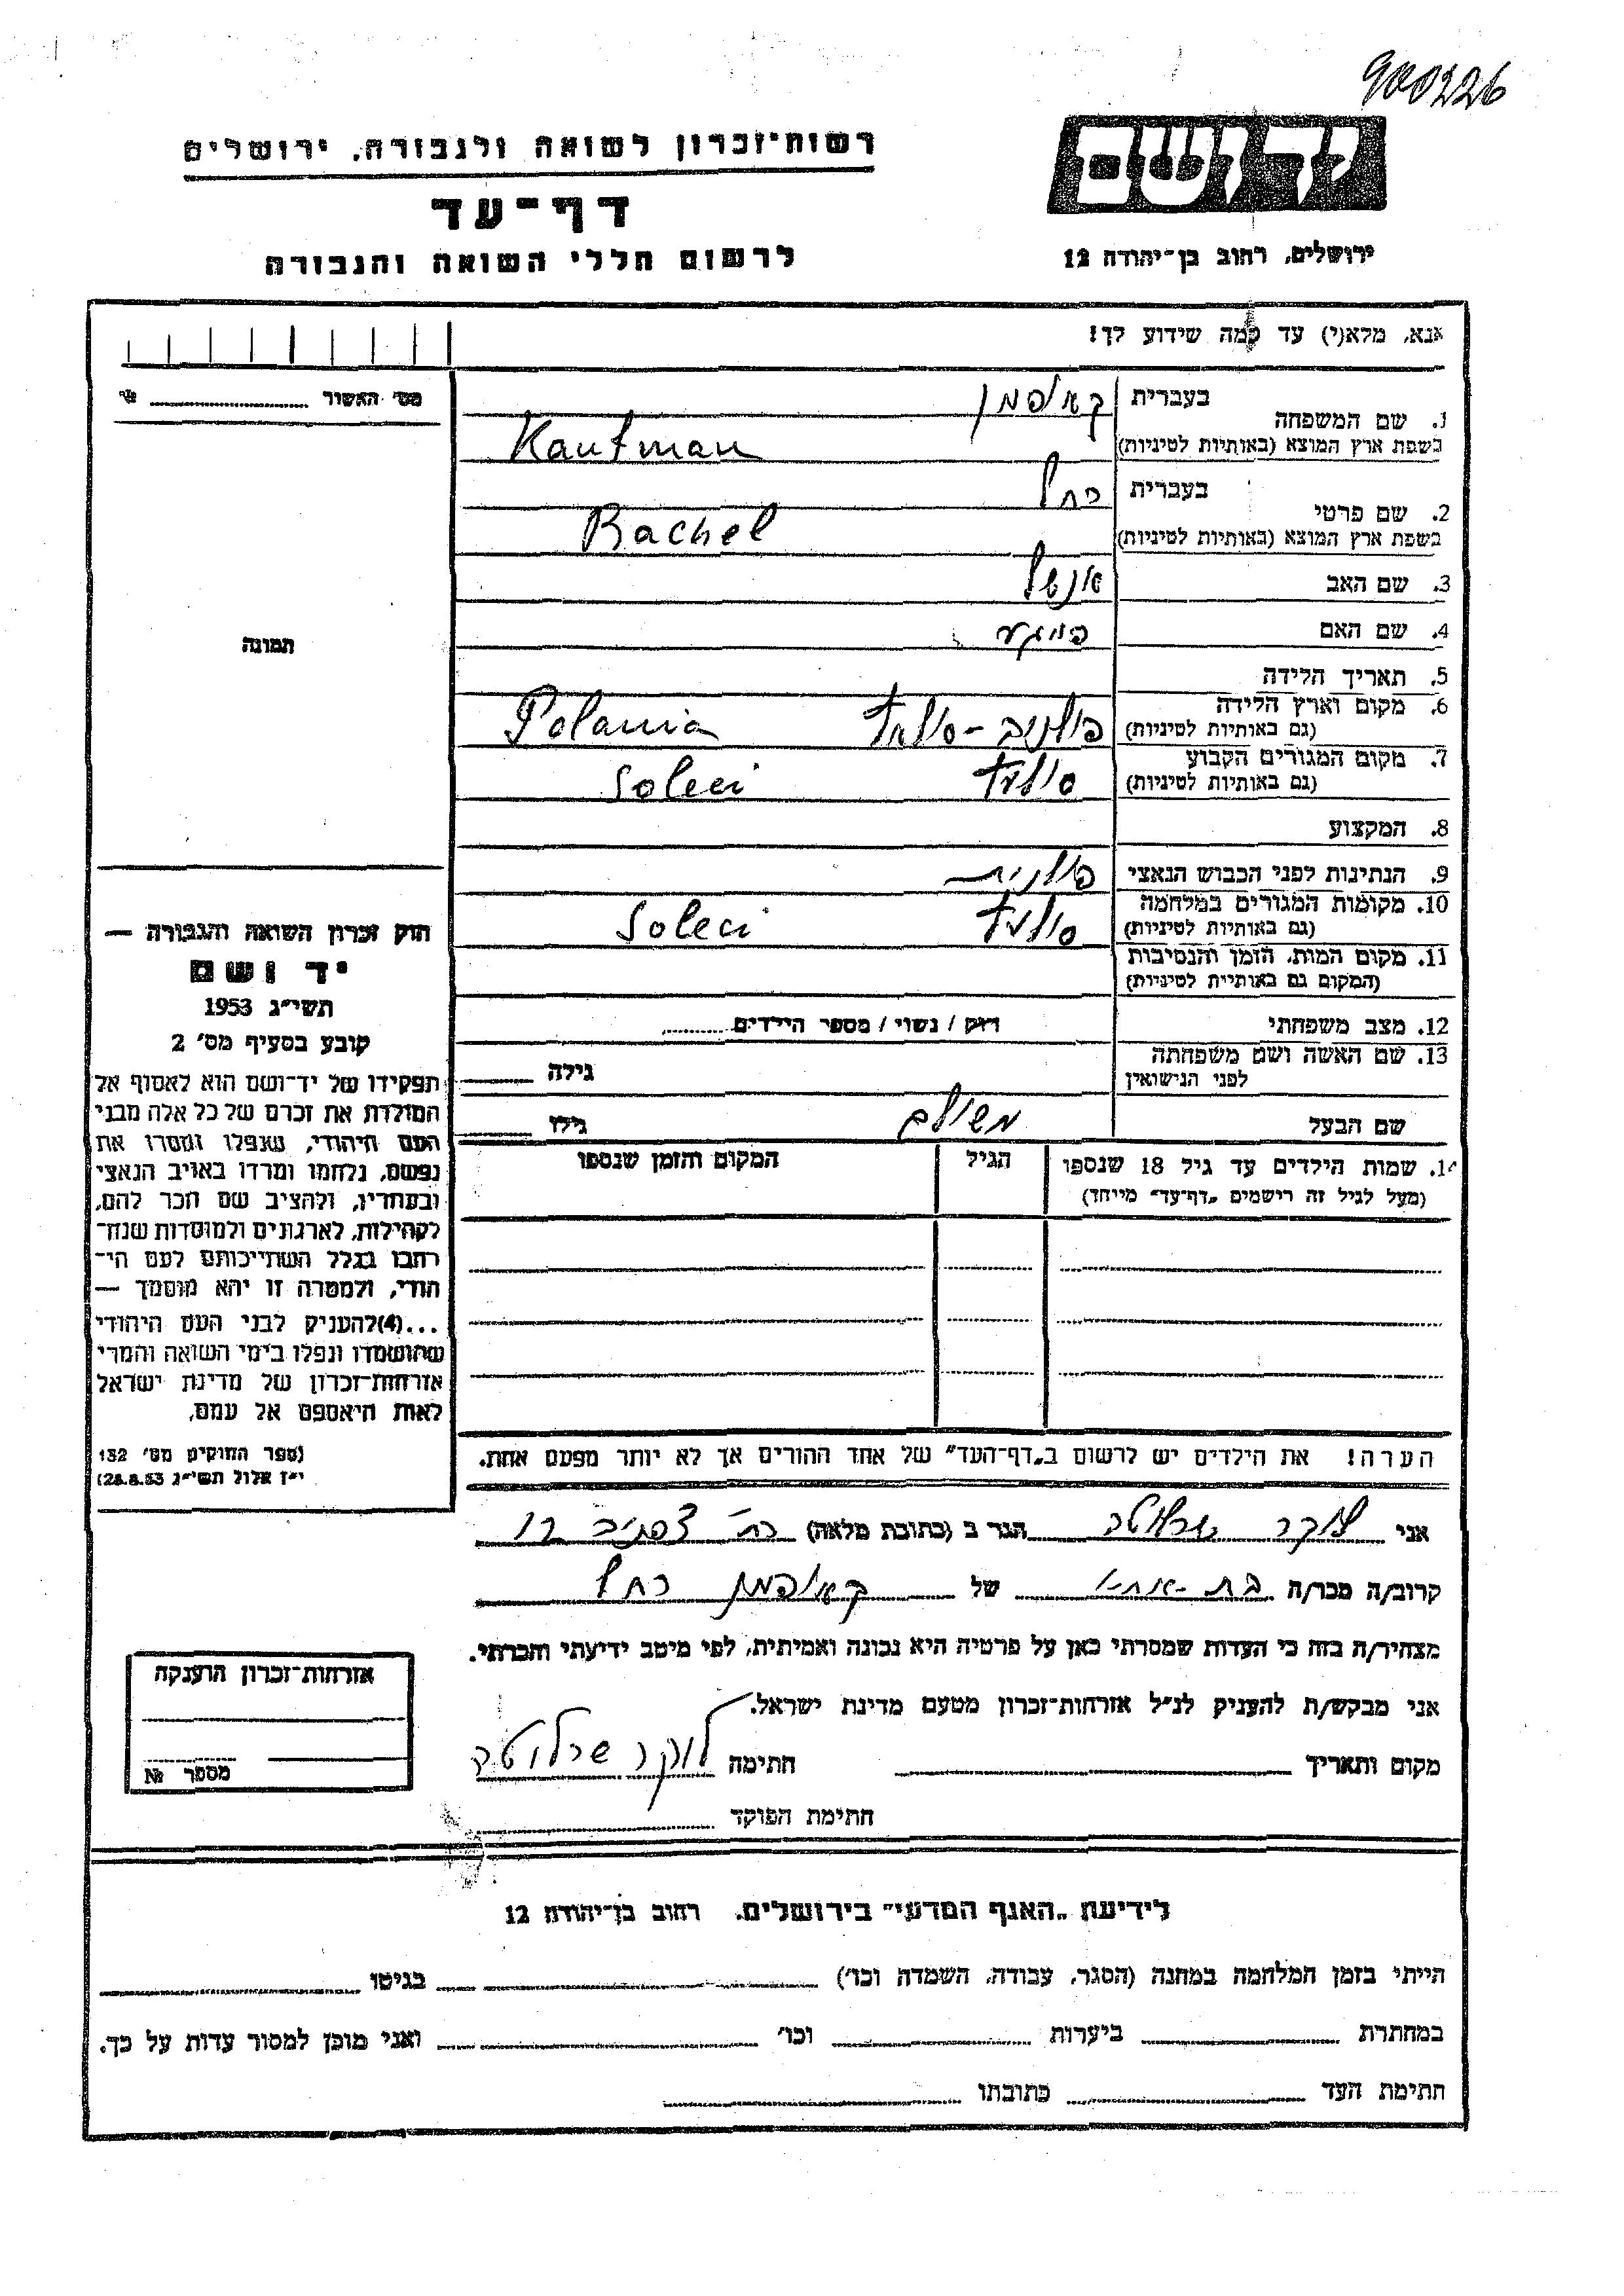 900226
רשות־זכרון לשואה ולגבורה, ירושלים
יד ושם
דף־עד
לרשום חללי השואה והגבורה
ירושלים, רחוב בן־יהודה 12
אנא, מלא(י) עד כמה שידוע לך!
מס׳ האשור
1. שם המשפחה
בעברית קאופמן
בשפת ארץ המוצא (באותיות לטיניות) Kaufman
2. שם פרטי
בעברית רחל
בשפת ארץ המוצא (באותיות לטיניות) Rachel
3. שם האב אנשל
4. שם האם פייגע
5. תאריך הלידה
6. מקום וארץ הלידה פולניה - Polania
(גם באותיות לטיניות)
7. מקום המגורים הקבוע Soleci
(גם באותיות לטיניות)
8. המקצוע
9. הנתינות לפני הכבוש הנאצי פולנית
10. מקומות המגורים במלחמה Soleci
(גם באותיות לטיניות)
11. מקום המות, הזמן והנסיבות
(המקום גם באותיית לטיניות)
12. מצב משפחתי רווק / נשוי / מספר הילדים
13. שם האשה ושם משפחתה
לפני הנישואין גילה
שם הבעל משולם גילו
14. שמות הילדים עד גיל 18 שנספו הגיל המקום והזמן שנספו
(מעל לגיל זה רישמים "דף־עד" מייחד)
הערה! את הילדים יש לרשום ב"דף־העד" של אחד ההורים אך לא יותר מפעם אחת.
תמונה
חוק זכרון השואה והגבורה —
יד ושם
תשי״ג 1953
קובע בסעיף מס׳ 2
תפקידו של יד־ושם הוא לאסוף אל
המולדת את זכרם של כל אלה מבני
העם היהודי, שנפלו ומסרו את
נפשם, נלחמו ומרדו באויב הנאצי
ובעוזריו, ולהציב שם וזכר להם,
לקהילות, לארגונים ולמוסדות שנח־
רבו בגלל השתייכותם לעם הי־
הודי, ולמטרה זו יהא מוסמך —
...(4)להעניק לבני העם היהודי
שהושמדו ונפלו בימי השואה והמרי
אזרחות־זכרון של מדינת ישראל
לאות היאספם אל עמם.
(ספר החוקים מס׳ 132
י״ז אלול תשי״ג 28.8.53)
אני לוקר שרלוטה הגר ב (כתובת מלאה) רח׳ צפניה 12
קרוב/ה מכר/ה בת-אחי של קאופמן רחל
מצהיר/ה בזה כי העדות שמסרתי כאן על פרטיה היא נכונה ואמיתית, לפי מיטב ידיעתי והכרתי.
אני מבקש/ת להעניק לנ״ל אזרחות־זכרון מטעם מדינת ישראל.
מקום ותאריך חתימה לוקר שרלוטה
חתימת הפוקד
אזרחות־זכרון הוענקה
מספר №
לידיעת "האגף המדעי" בירושלים, רחוב בן־יהודה 12
הייתי בזמן המלחמה במחנה (הסגר, עבודה, השמדה וכו׳) בגיטו
במחתרת ביערות וכו׳ ואני מוכן למסור עדות על כך.
חתימת העד כתובתו